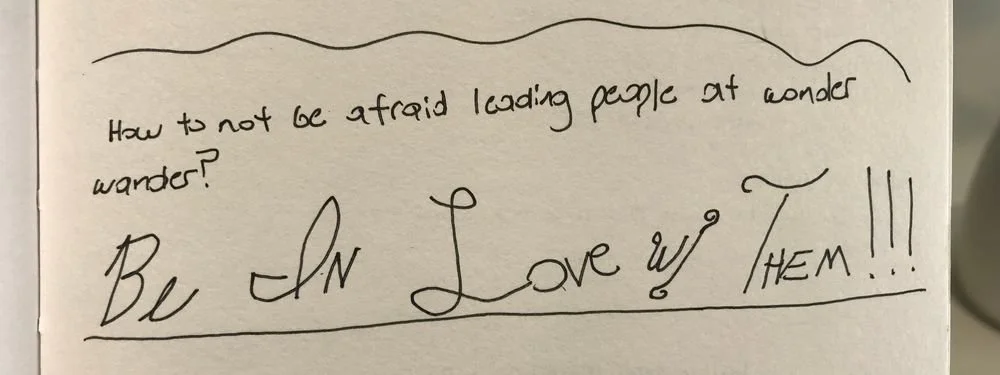 How to not be afraid leading people at wonder
wander?
Be In Love w/ Them!!!